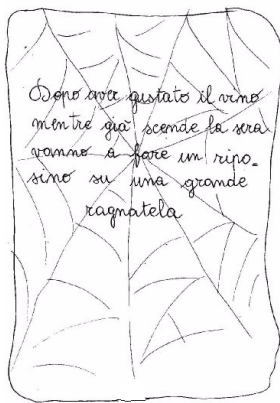 Dopo aver gustato il vino
mentre già scende la sera
vanno a fare un ripo=
sino su una grande
ragnatela